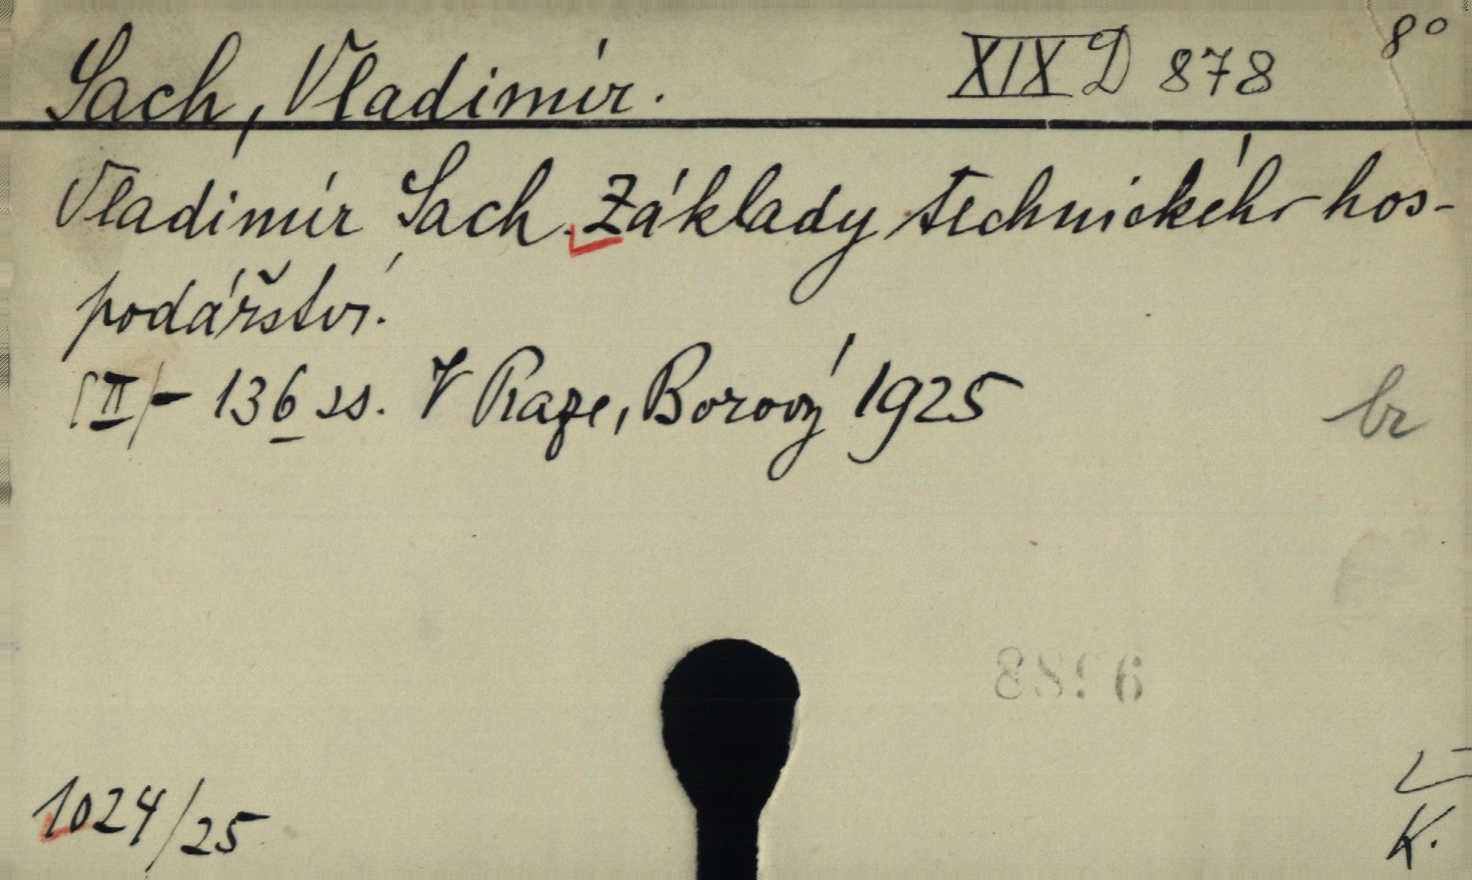 Sach, Vladimír. XIX D 878 8°
Vladimír Sach. Základy technického hos-
podářství.
[II] - 136 ss. V Praze, Borový 1925
br
1024/25
K.